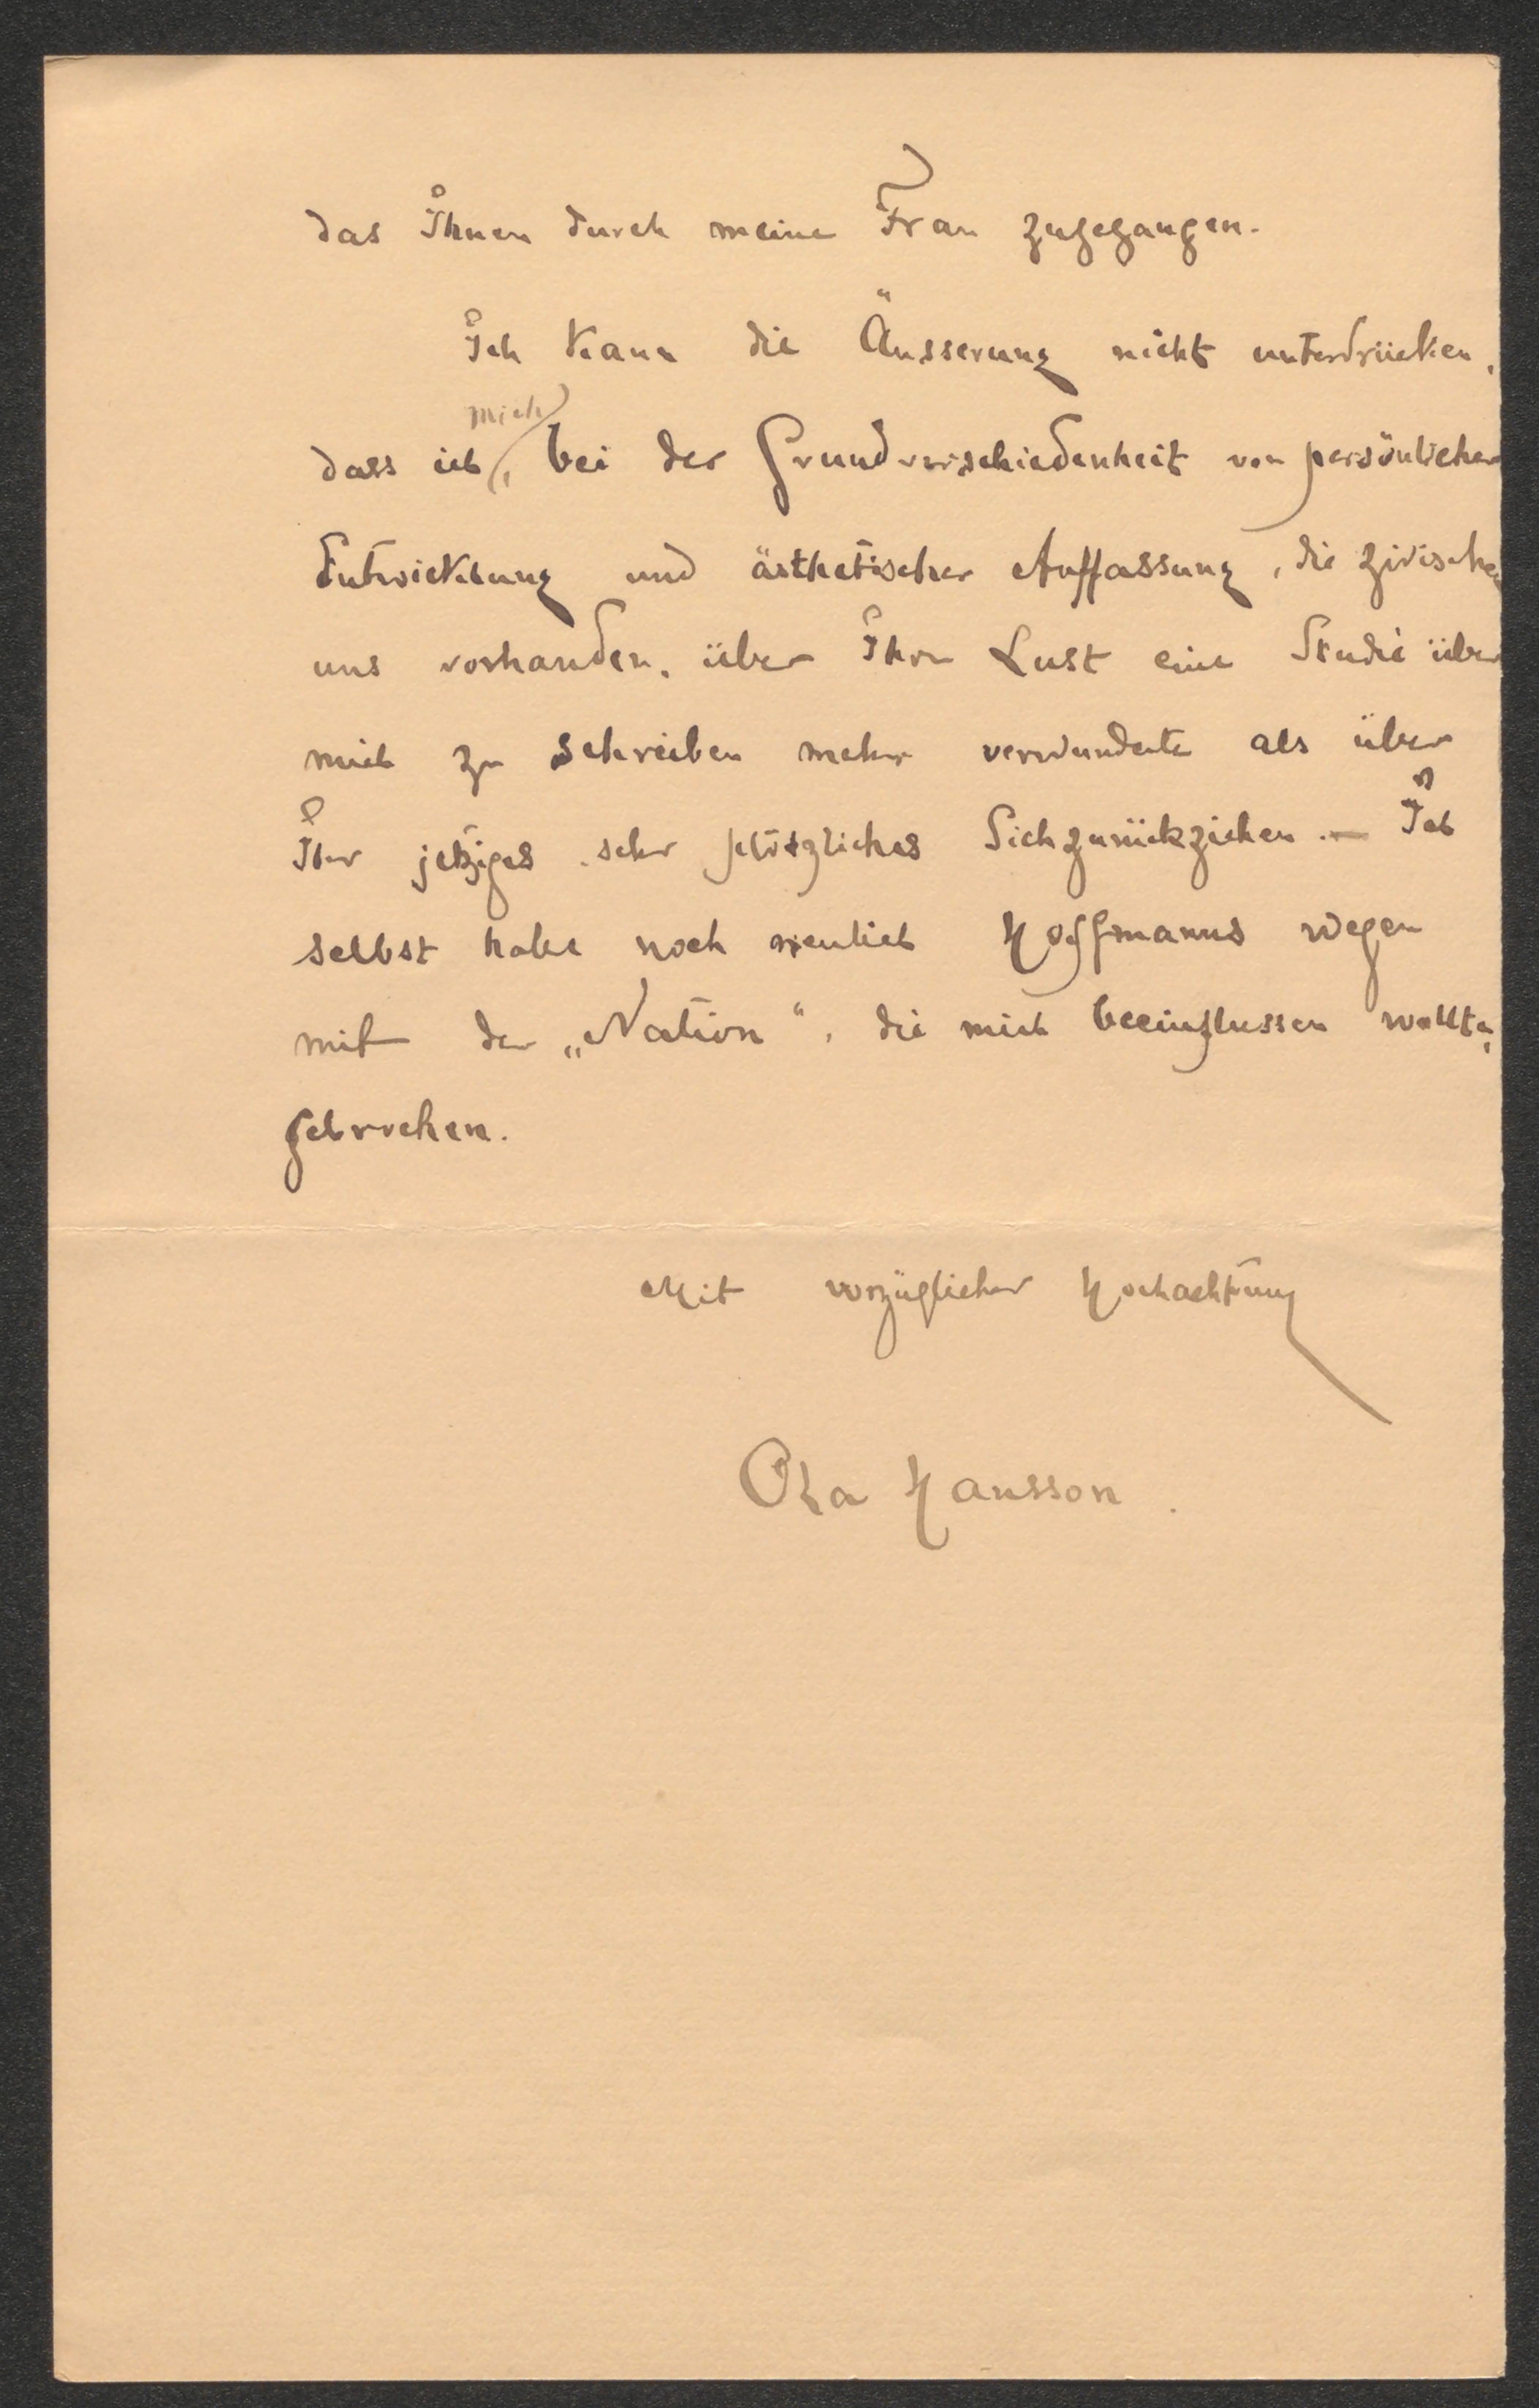 das Ihnen durch meine Frau zugegangen.
Ich kann die Äusserung nicht unterdrücken,
dass ich mich, bei der Grundverschiedenheit von persönlicher
Entwicklung und ästhetischer Auffassung, die zwischen
uns vorhanden, über Ihre Lust eine Studie über
mich zu schreiben mehr verwunderte als über
Ihr jetziges sehr plötzliches Sichzurückziehen. — Ich
selbst habe noch neulich Hoffmanns wegen
mit der „Nation“, die mich beeinflussen wollte,
gebrochen.
Mit vorzüglicher Hochachtung
Ola Hansson.